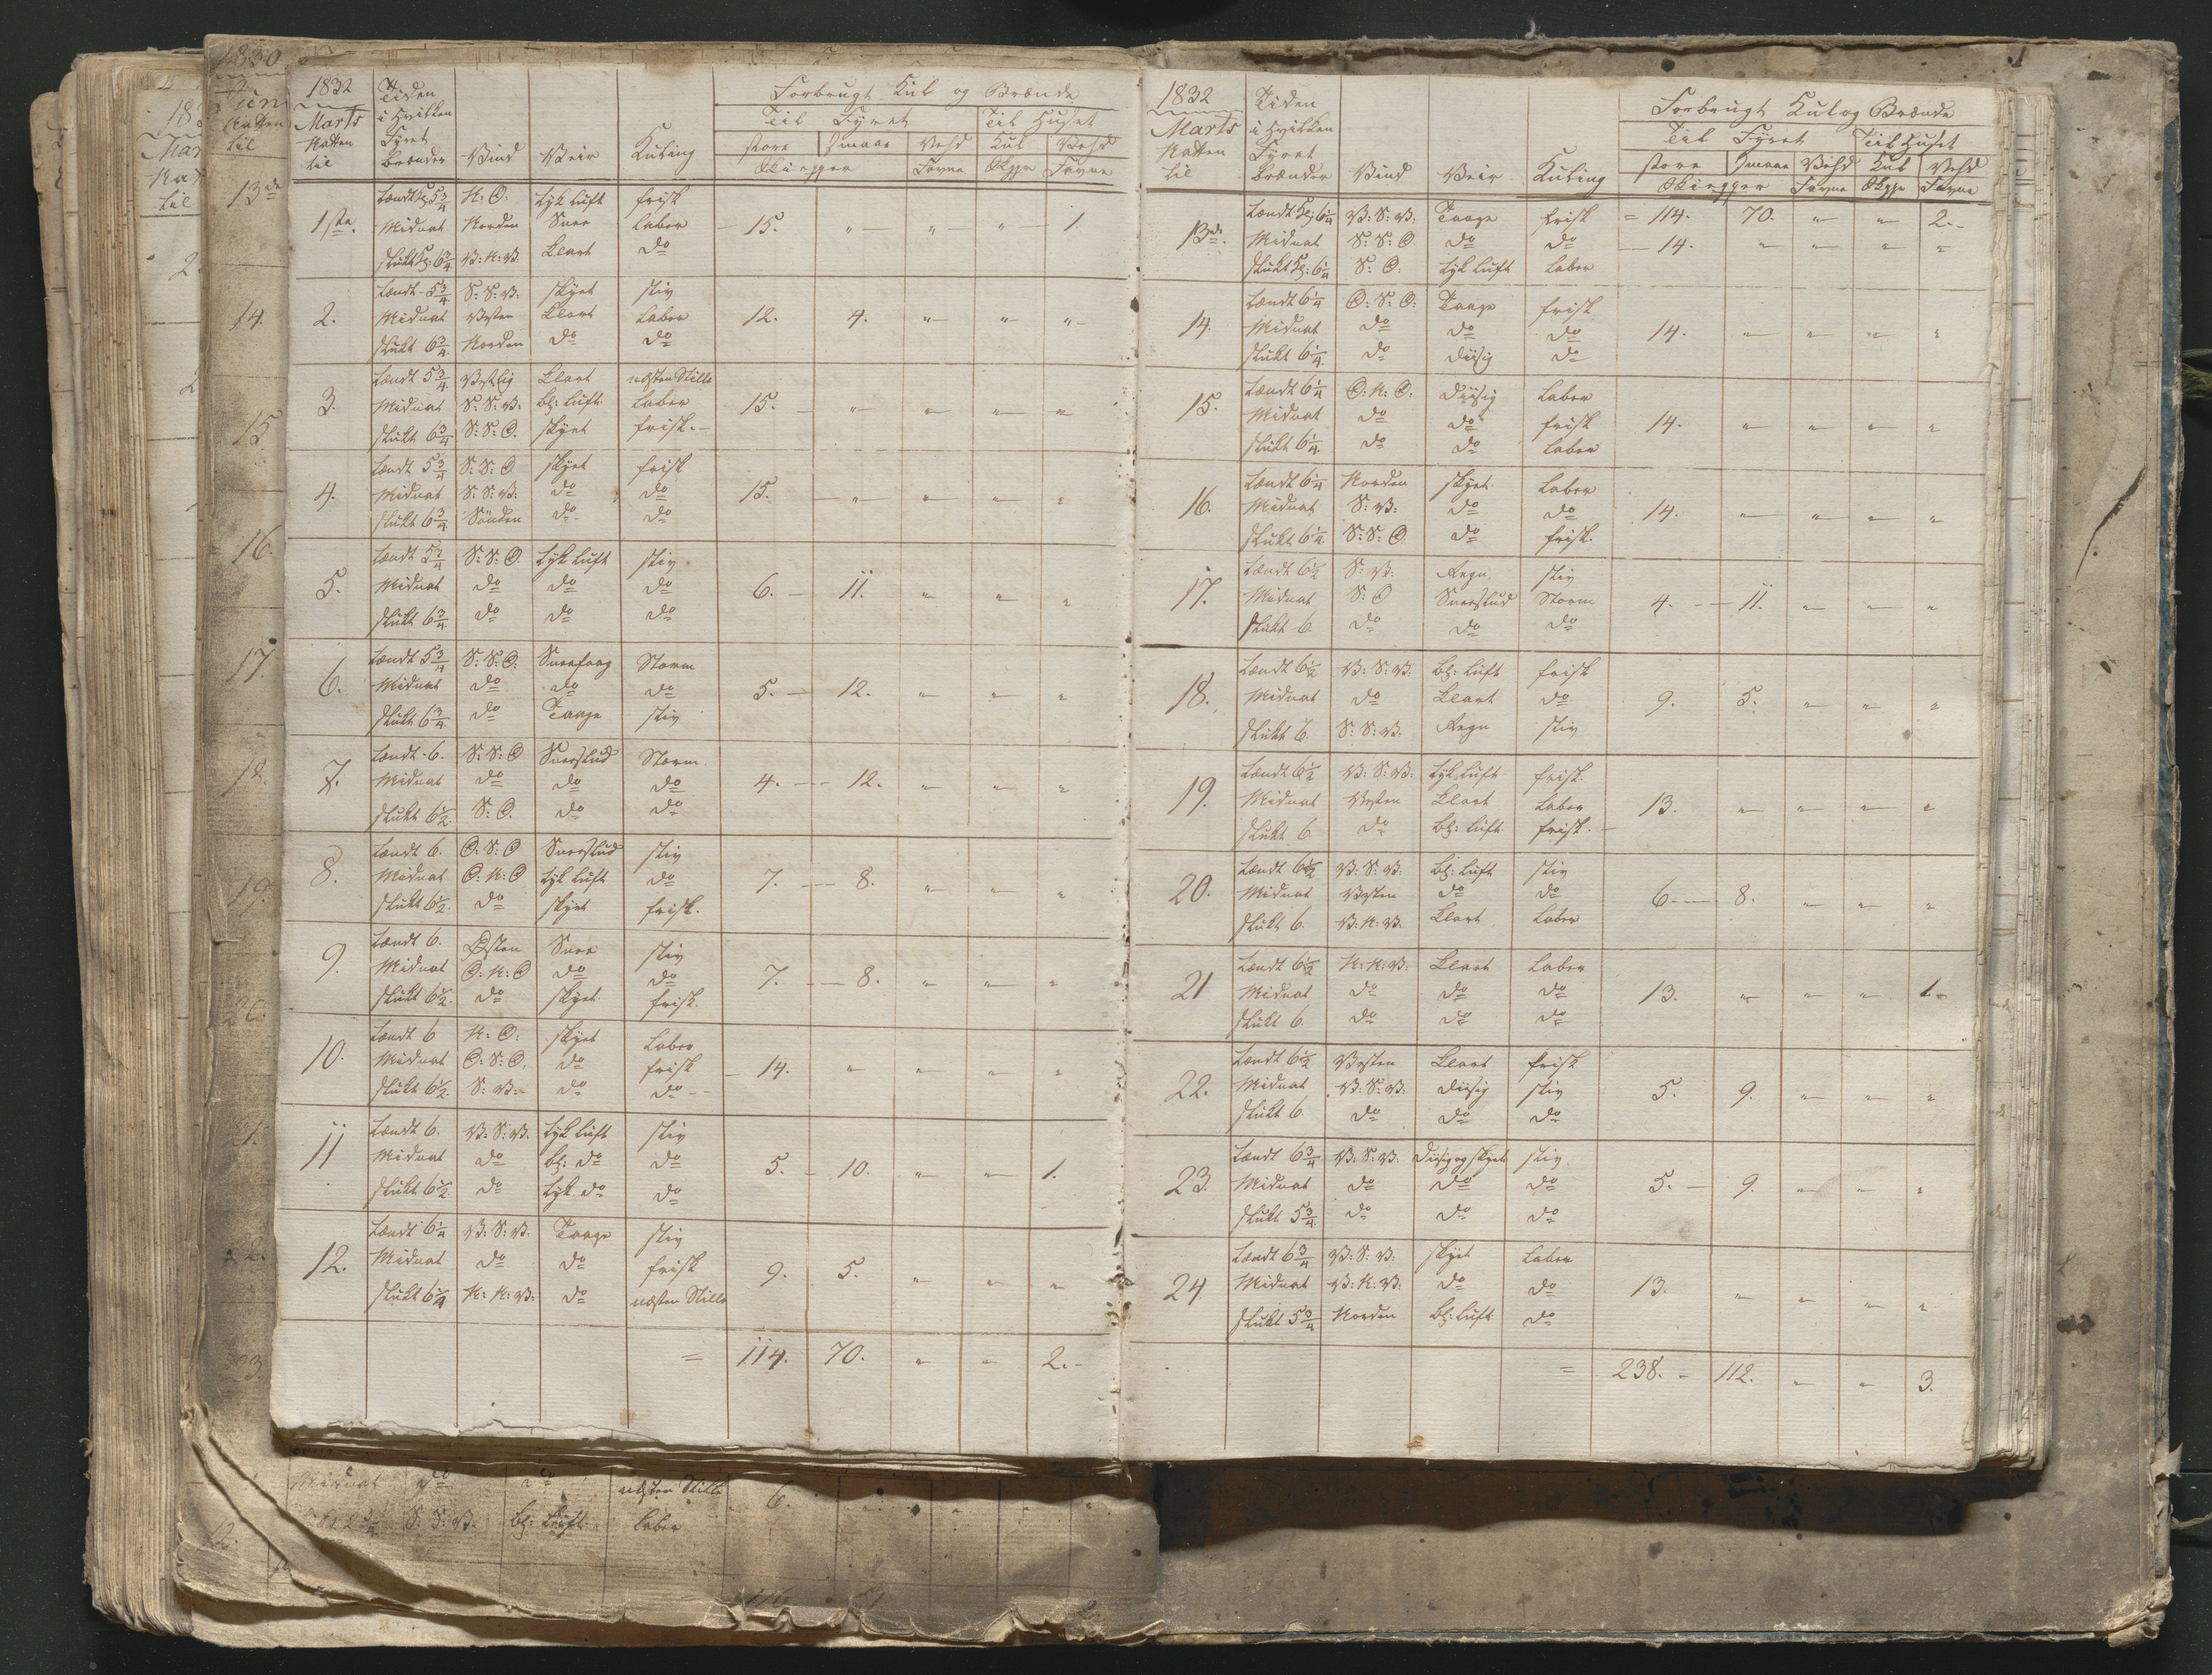 1832
Marts
Natten
til
Tiden
i Hvilken
Fyret
brænder
Vind
Veir
Kuling
Forbrugt Kul og Brænde
Til Fyret Til Huset
store Smaae Vehd Kul Vehd
Skiepper Favne Skpr Favne
tændt Kl: 5 3/4 N. O. tyk luft frisk
1ste. Midnat Norden Snee laber 15. " " " 1
slukt Kl: 6 3/4 V: N: V. Klart do
tændt 5 3/4 S: S: V. skyet stiv
2. Midnat Vesten Klart laber 12. 4. " " "
slukt 6 3/4 Norden do do
tændt 5 3/4 Vestlig Klart næsten Stille
3. Midnat S: S: V. bl: luft laber 15. " " " "
slukt 6 3/4 S: S: O. skyet frisk.
tændt 5 3/4 S: S: O skyet frisk
4. Midnat S: S: V. do do 15. " " " "
slukt 6 3/4 Sönden do do
tændt 5 3/4 S: S: O. tyk luft stiv
5. Midnat do do do 6. 11. " " "
slukt 6 3/4 do do do
tændt 5 3/4 S: S: O. Sneefog Storm
6. Midnat do do do 5. 12. " " "
slukt 6 3/4 do Taage stiv
tændt 6. S: S: O Sneeslud Storm
7. Midnat do do do 4. 12. " " "
slukt 6 1/2. S: O. do do
tændt 6. O: S: O Sneeslud stiv
8. Midnat O: N: O tyk luft do 7. 8. " " "
slukt 6 1/2. do skyet frisk.
tændt 6. Østen Snee stiv
9. Midnat O: N: O do do 7. 8. " " "
slukt 6 1/2. do skyet frisk.
tændt 6 N: O: skyet laber
10. Midnat O: S: O. do frisk 14. " " " "
slukt 6 1/2. S: V: do do
tændt 6. V: S: V. tyk luft stiv
11 Midnat do bl: do do 5. 10. " " 1.
slukt 6 1/2. do tyk do do
tændt 6 1/4 V: S: V. Taage stiv
12. Midnat do do frisk 9. 5. " " "
slukt 6 1/4 N: N: V: do næsten Stille
= 114. 70. " " 2.
1832
Marts
Natten
til
Tiden
i Hvilken
Fyret
brænder
Vind
Veir
Kuling
Forbrugt Kul og Brænde
Til Fyret Til Huset
store Smaae Vehd Kul Vehd
Skiepper Favne Skpr Favne
tændt Kl: 6 1/4 V: S: V. Taage frisk = 114. 70. " " 2.
13de. Midnat S: S: O do do 14. " " " "
slukt Kl: 6 1/4 S: O. tyk luft laber
tændt 6 1/4 O: S: O: Taage frisk
14. Midnat do do do 14. " " " "
slukt 6 1/4 do diisig do
tændt 6 1/4 O: N: O. diisig laber
15. Midnat do do frisk 14. " " " "
slukt 6 1/4. do do laber
tændt 6 1/4 Norden skyet laber
16. Midnat S: V: do do 14. " " " "
slukt 6 1/4. S: S: O do frisk.
tændt 6 1/2 S: V: Regn stiv
17. Midnat S: O Sneeslud Storm 4. 11. " " "
slukt 6. do do do
tændt 6 1/2 V: S: V. bl: luft frisk
18. Midnat do Klart do 9. 5. " " "
slukt 6. S: S: V. Regn stiv
tændt 6 1/2 V: S: V: tyk luft frisk
19. Midnat Vesten Klart laber 13. " " " "
slukt 6 do bl: luft frisk.
tændt 6 1/2 V: S: V. bl: luft stiv
20. Midnat Vesten do do 6 8. " " "
slukt 6. V: N: V. Klart laber
tændt 6 1/2 N: N: V: Klart laber
21 Midnat do do do 13. " " " 1.
slukt 6. do do do
tændt 6 1/2 Vesten Klart frisk
22. Midnat V: S: V. diisig stiv 5. 9. " " "
slukt 6. do do do
tændt 6 3/4 V: S: V. diisig og skyet stiv
23. Midnat do do do 5. 9. " " "
slukt 5 3/4. do do do
tændt 6 3/4 V: S: V: skyet laber
24 Midnat V: N: V. do do 13. " " " "
slukt 5 3/4 Norden bl: luft do
= 238. 112. " " 3.
1830
13de
14.
15
16.
17.
18.
19.
Midnat do do næsten Stille 6.
S: S: V. bl: luft laber